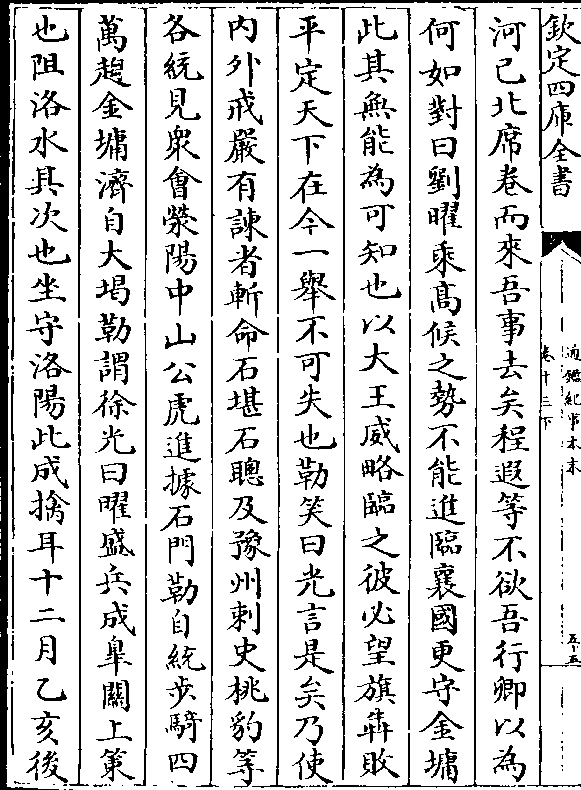 欽定四庫全書
通鑑紀事本末
卷十三下
五十五
河已北席卷而來吾事去矣程遐等不欲吾行卿以為
何如對曰劉曜乘髙候之勢不能進臨襄國更守金墉
此其無能為可知也以大王威略臨之彼必望旗犇敗
平定天下在今一舉不可失也勒笑曰光言是矣乃使
内外戒嚴有諫者斬命石堪石聰及豫州刺史桃豹等
各統見衆會滎陽中山公虎進據石門勒自統步騎四
萬趨金墉濟自大堨勒謂徐光曰曜盛兵成臯關上策
也阻洛水其次也坐守洛陽此成擒耳十二月乙亥後